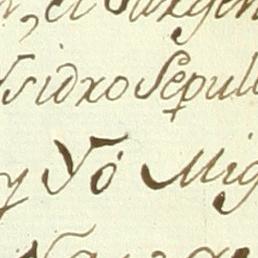 el Sargen
Ysidro Sepul
y Yó Mig